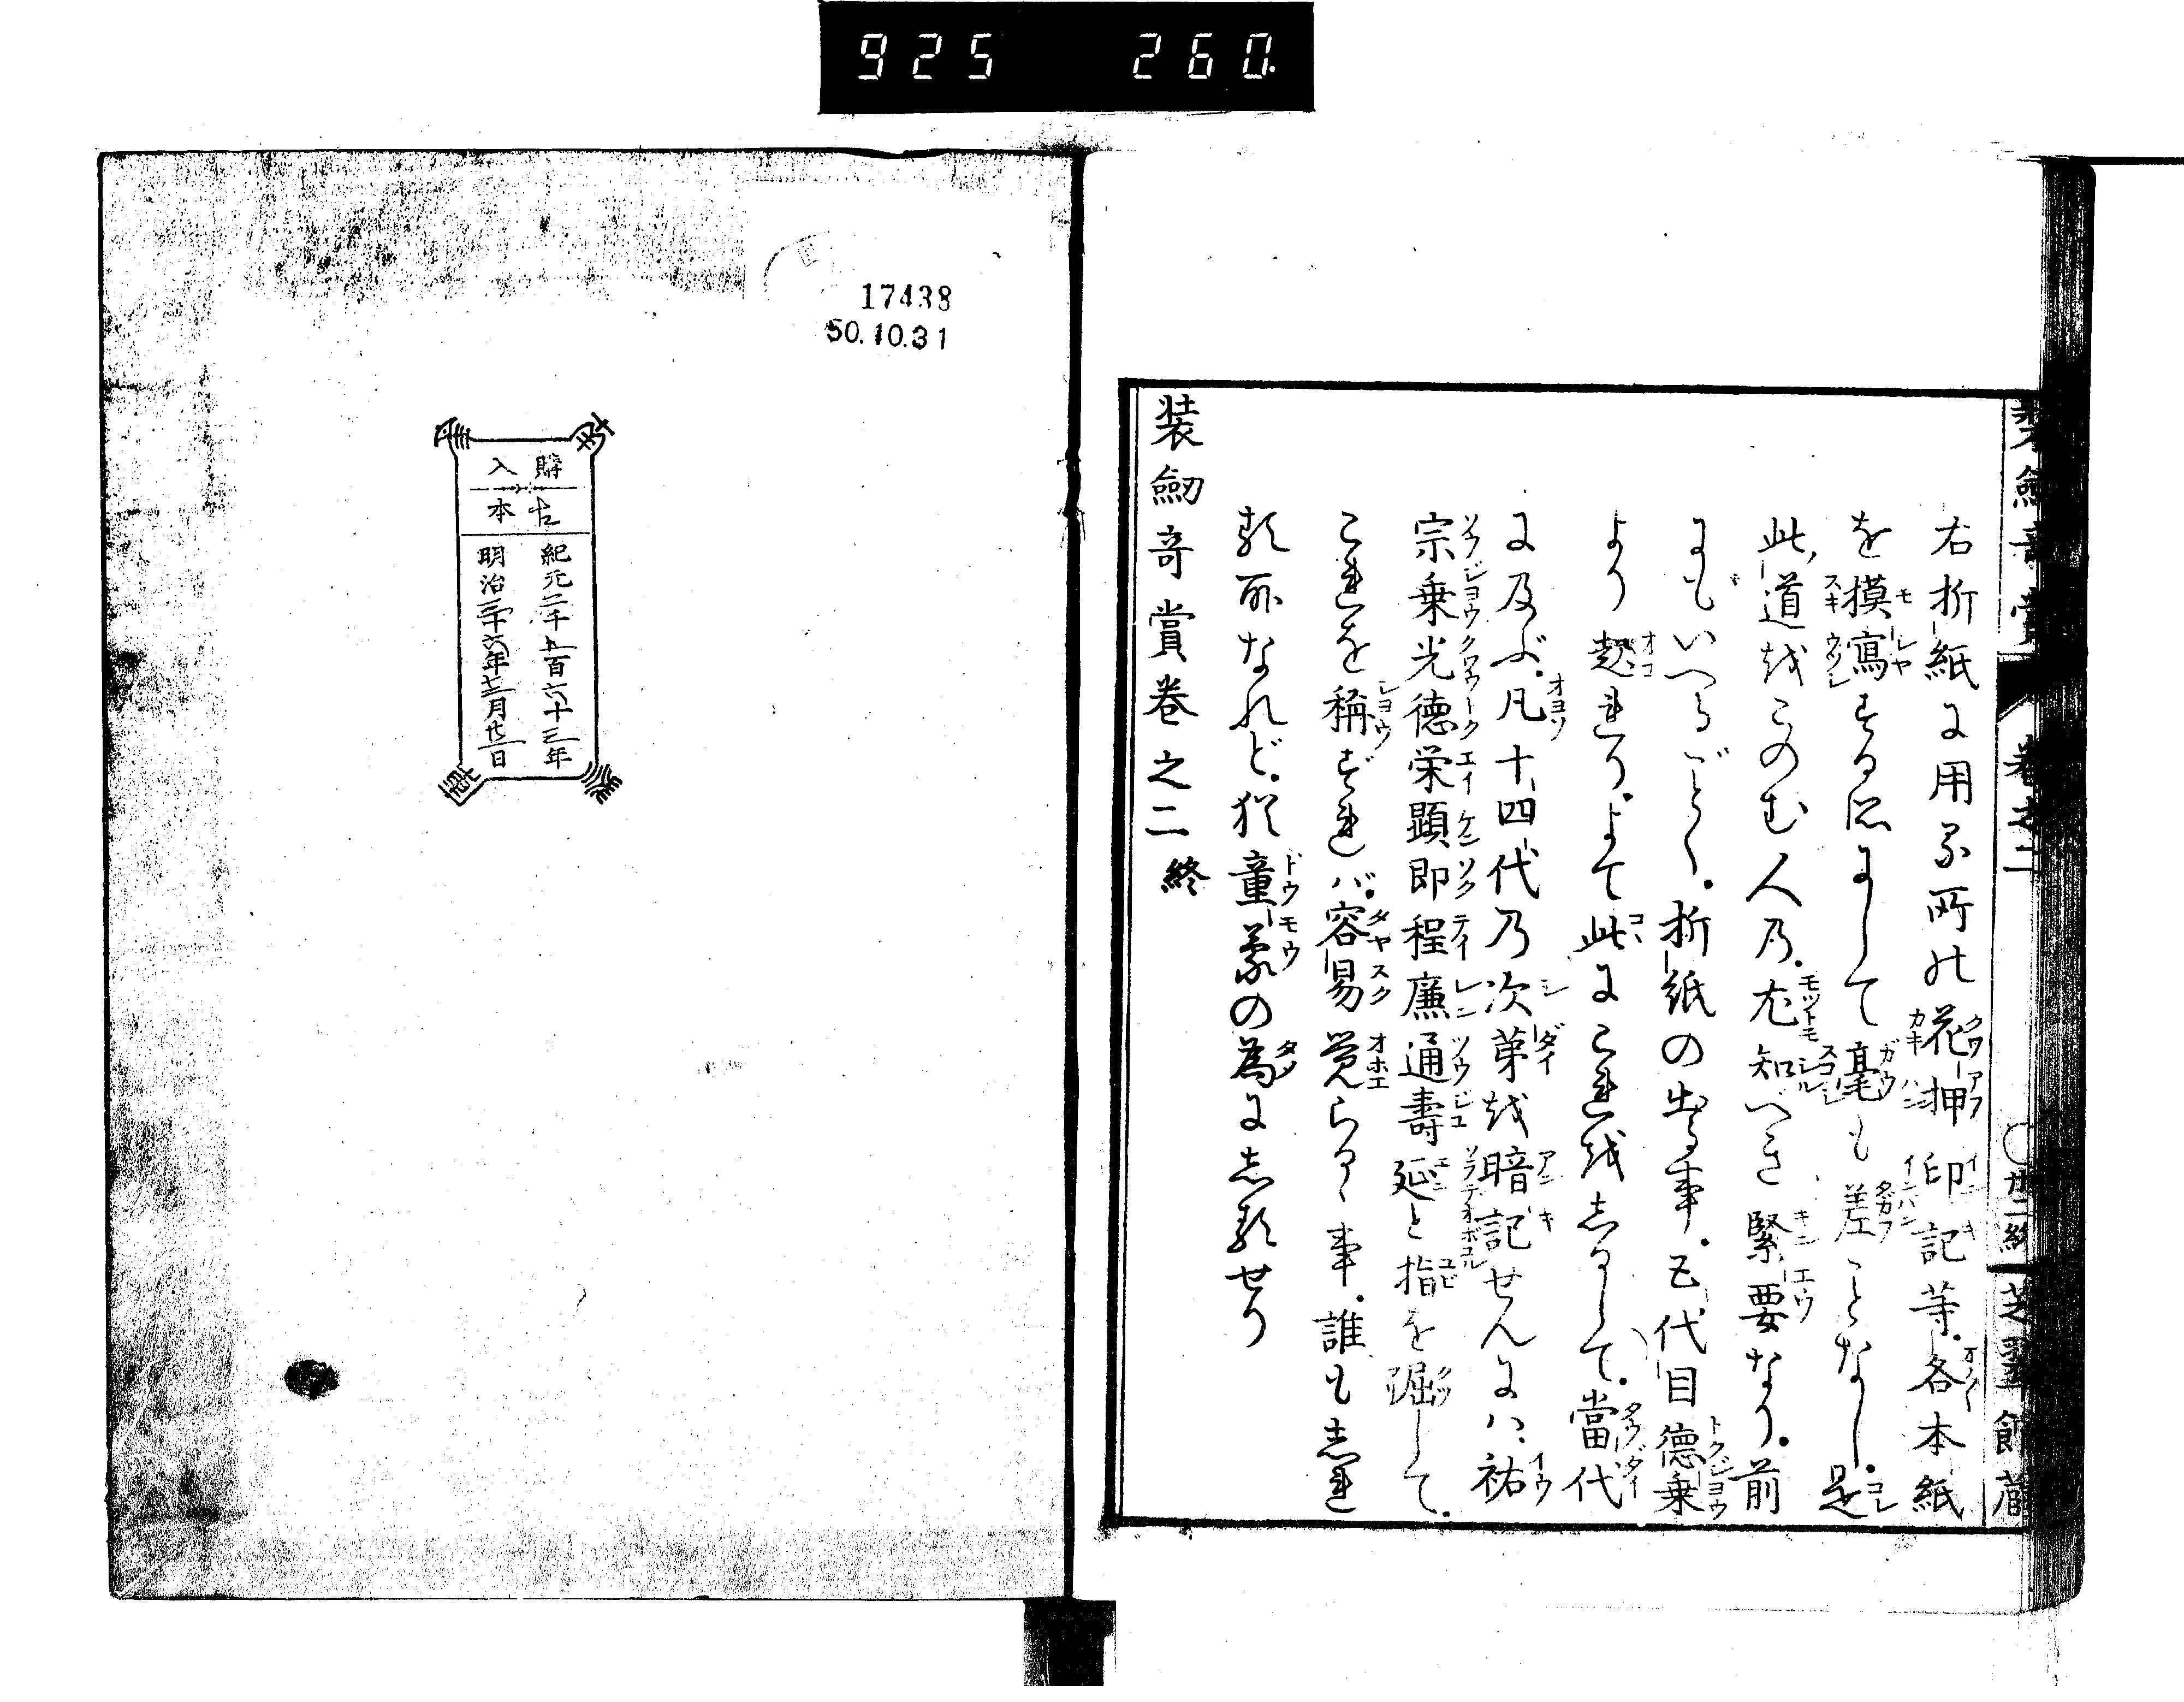 925 260.
装劒奇賞 卷之二 ○廿二終 芝翠館蔵
右折紙に用る所の花押印記等各本紙
を摸寫する処にして毫も差ことなし是
此道をこのむ人の尤知べき緊要なり前
にもいへるごとく折紙の出る事五代目德乗
より起れりよて此にこれをしるして當代
に及ぶ凡十四代の次第を暗記せんにハ祐
宗乗光德栄顕即程廉通壽延と指を堀して
これを稱ずれバ容易覚らるゝ事誰もしれ
る所なれど猶童蒙の為にしるせり
装劒奇賞卷之二終
17438
50.10.31
購入
古本
紀元二千五百六十三年
明治三十六年十二月廿二日